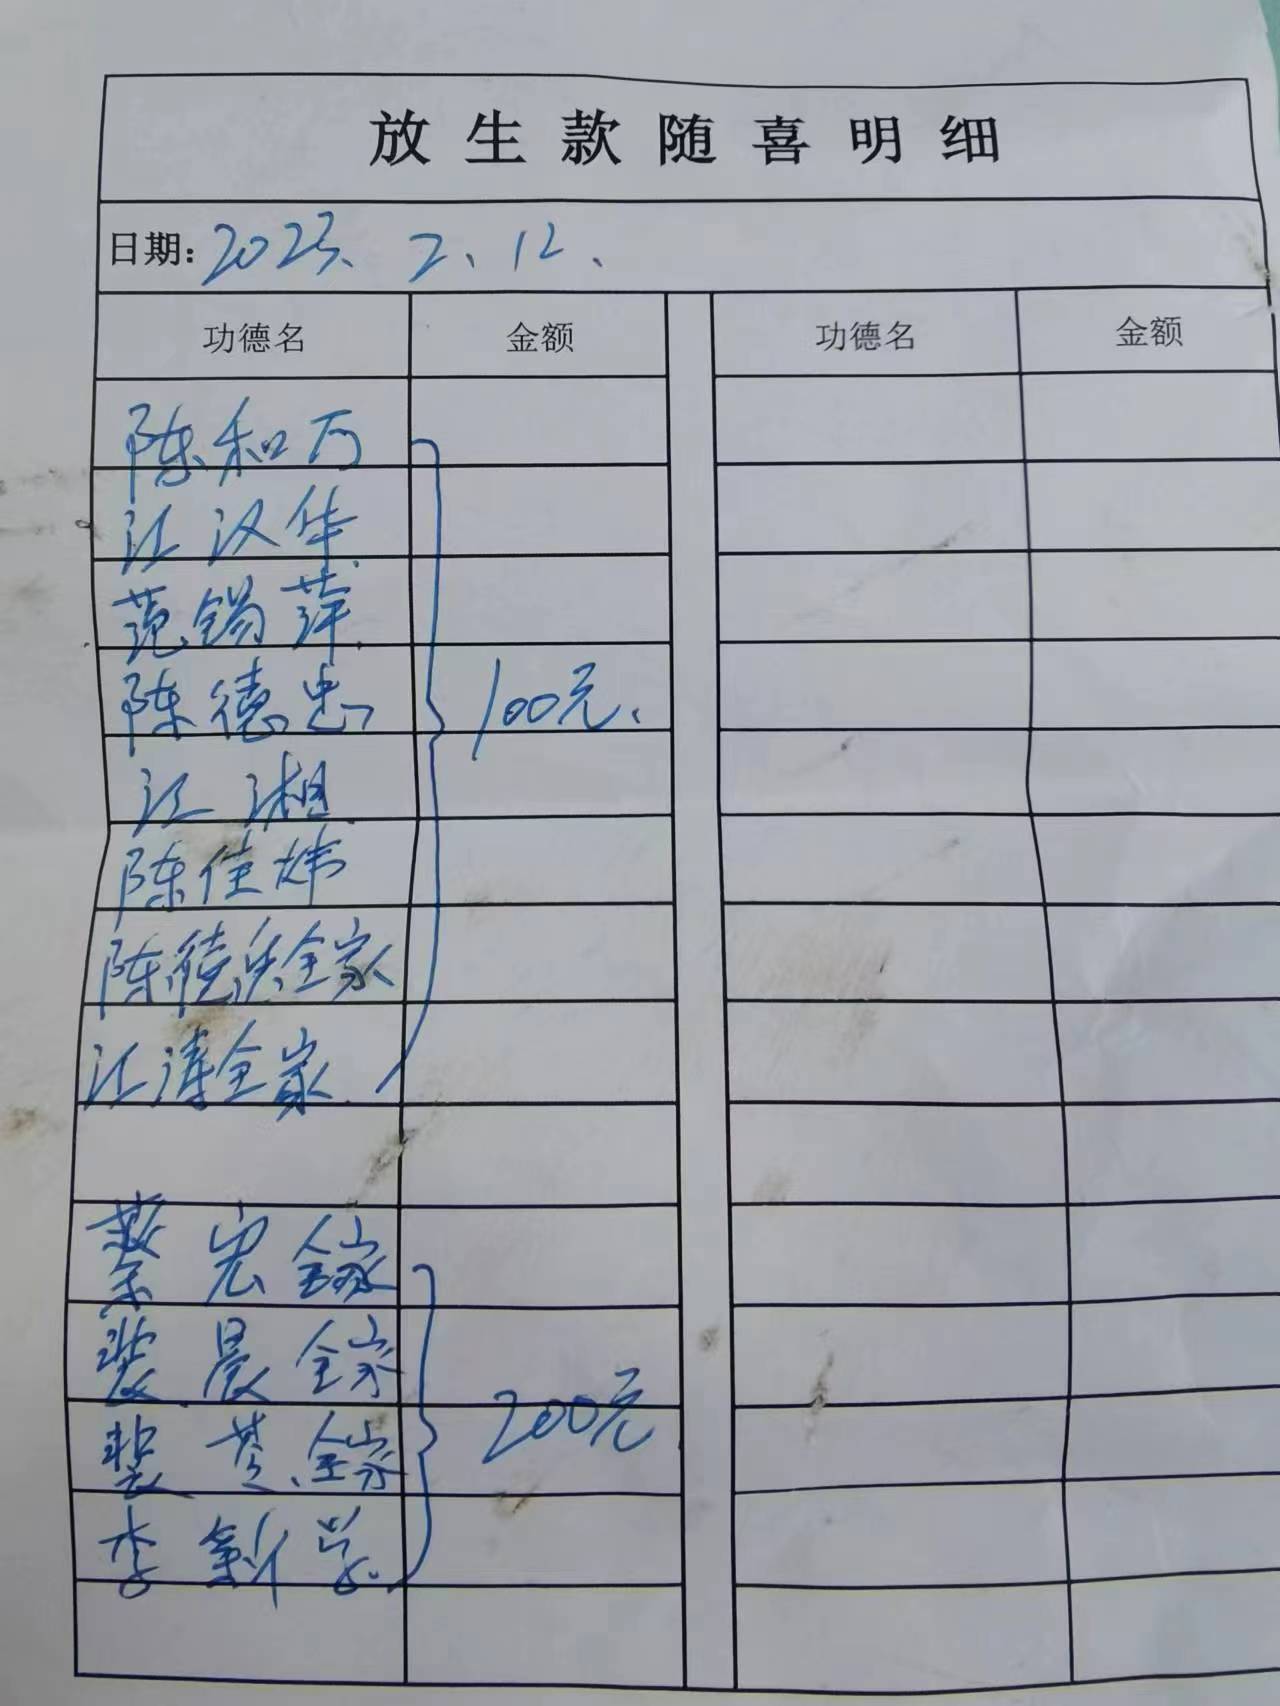 放生款随喜明细
日期: 2023、2、12、
功德名 金额 功德名 金额
陈和万
江汉华
范锡萍
陈德忠 100元、
江湘
陈佳炜
陈德兵全家
江涛全家
蔡宏全家
裴晨全家
裴 全家 200元
李新学